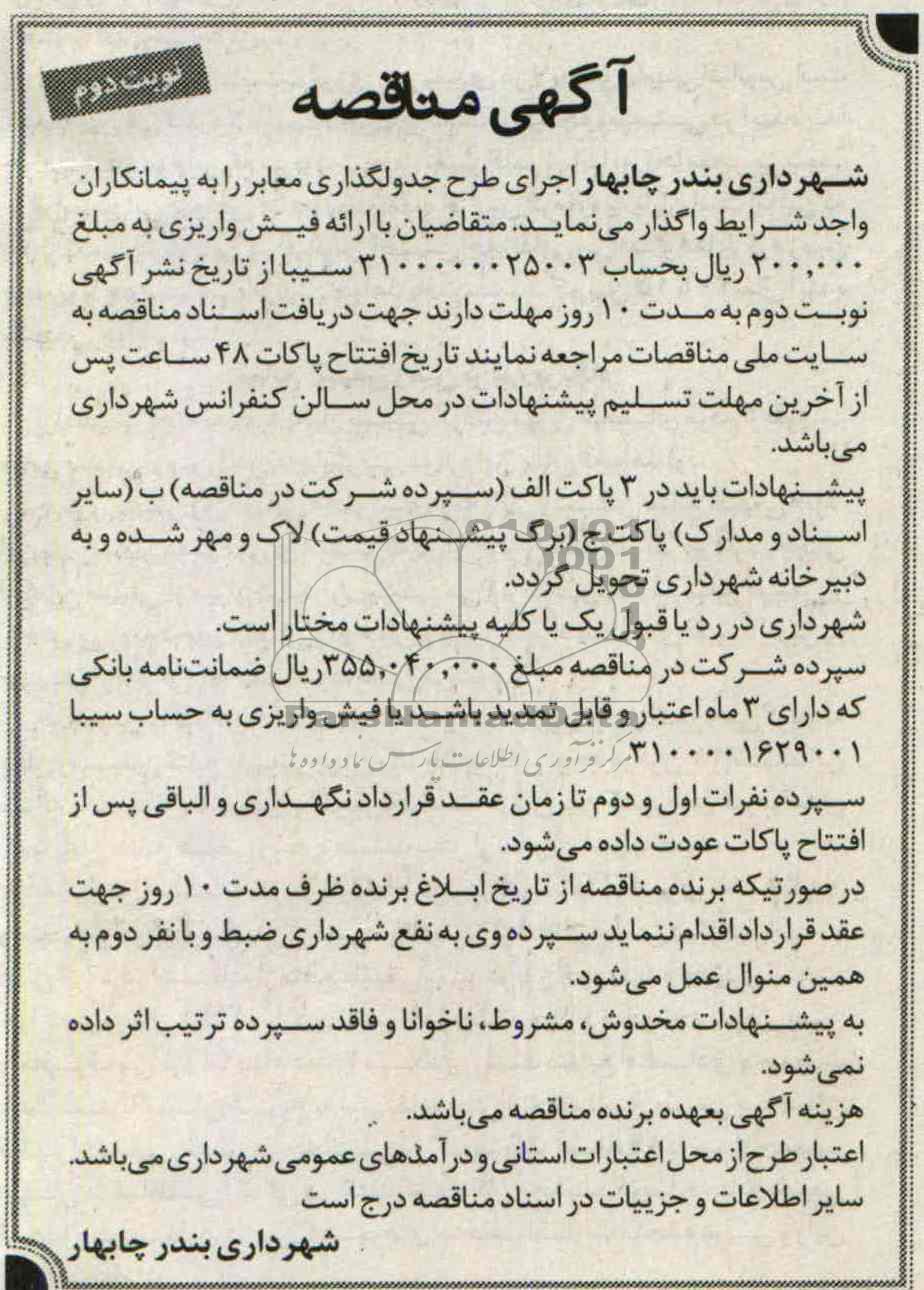 نوبت دوم
آگهی مناقصه
شهرداری بندر چابهار اجرای طرح جدولگذاری معابر را به پیمانکاران
واجد شرایط واگذار می‌نماید. متقاضیان با ارائه فیش واریزی به مبلغ
۲۰۰,۰۰۰ ریال بحساب ۳۱۰۰۰۰۰۰۲۵۰۰۳ سیبا از تاریخ نشر آگهی
نوبت دوم به مدت ۱۰ روز مهلت دارند جهت دریافت اسناد مناقصه به
سایت ملی مناقصات مراجعه نمایند تاریخ افتتاح پاکات ۴۸ ساعت پس
از آخرین مهلت تسلیم پیشنهادات در محل سالن کنفرانس شهرداری
می‌باشد.
پیشنهادات باید در ۳ پاکت الف (سپرده شرکت در مناقصه) ب (سایر
اسناد و مدارک) پاکت ج (برگ پیشنهاد قیمت) لاک و مهر شده و به
دبیرخانه شهرداری تحویل گردد.
شهرداری در رد یا قبول یک یا کلیه پیشنهادات مختار است.
سپرده شرکت در مناقصه مبلغ ۳۵۵,۰۴۰,۰۰۰ ریال ضمانت‌نامه بانکی
که دارای ۳ ماه اعتبار و قابل تمدید باشد یا فیش واریزی به حساب سیبا
۳۱۰۰۰۰۱۶۲۹۰۰۱
مرکز فرآوری اطلاعات پارس نماد داده ها
سپرده نفرات اول و دوم تا زمان عقد قرارداد نگهداری و الباقی پس از
افتتاح پاکات عودت داده می‌شود.
در صورتیکه برنده مناقصه از تاریخ ابلاغ برنده ظرف مدت ۱۰ روز جهت
عقد قرارداد اقدام ننماید سپرده وی به نفع شهرداری ضبط و با نفر دوم به
همین منوال عمل می‌شود.
به پیشنهادات مخدوش، مشروط، ناخوانا و فاقد سپرده ترتیب اثر داده
نمی‌شود.
هزینه آگهی بعهده برنده مناقصه می‌باشد.
اعتبار طرح از محل اعتبارات استانی و درآمدهای عمومی شهرداری می‌باشد.
سایر اطلاعات و جزییات در اسناد مناقصه درج است
شهرداری بندر چابهار